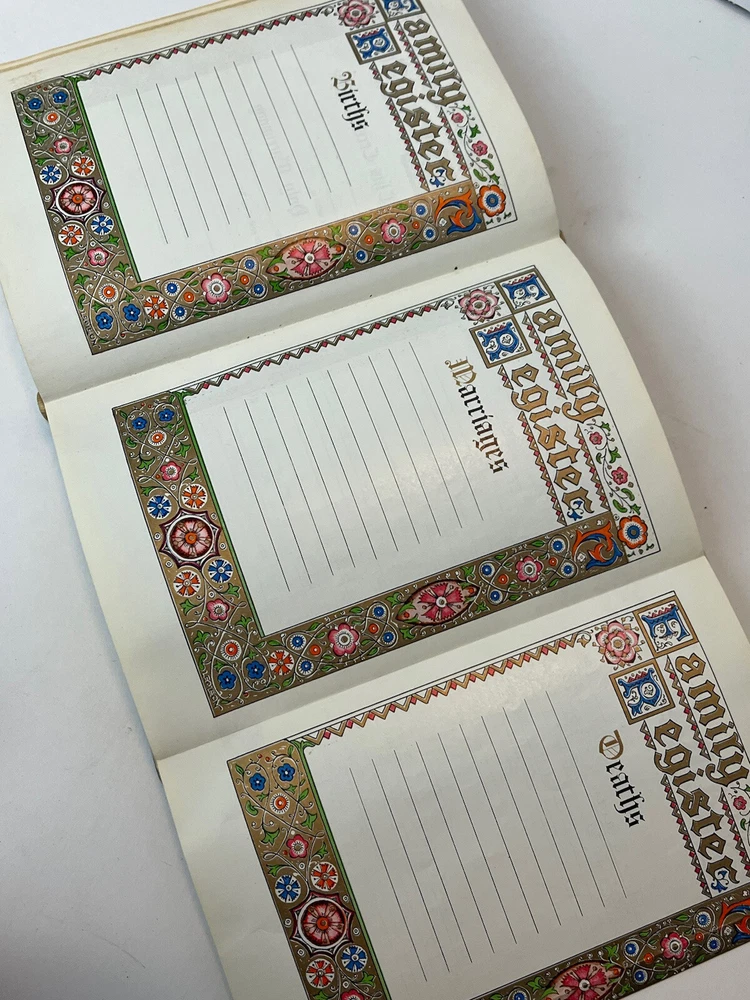 Family
Register
Births
Family
Register
Marriages
Family
Register
Deaths